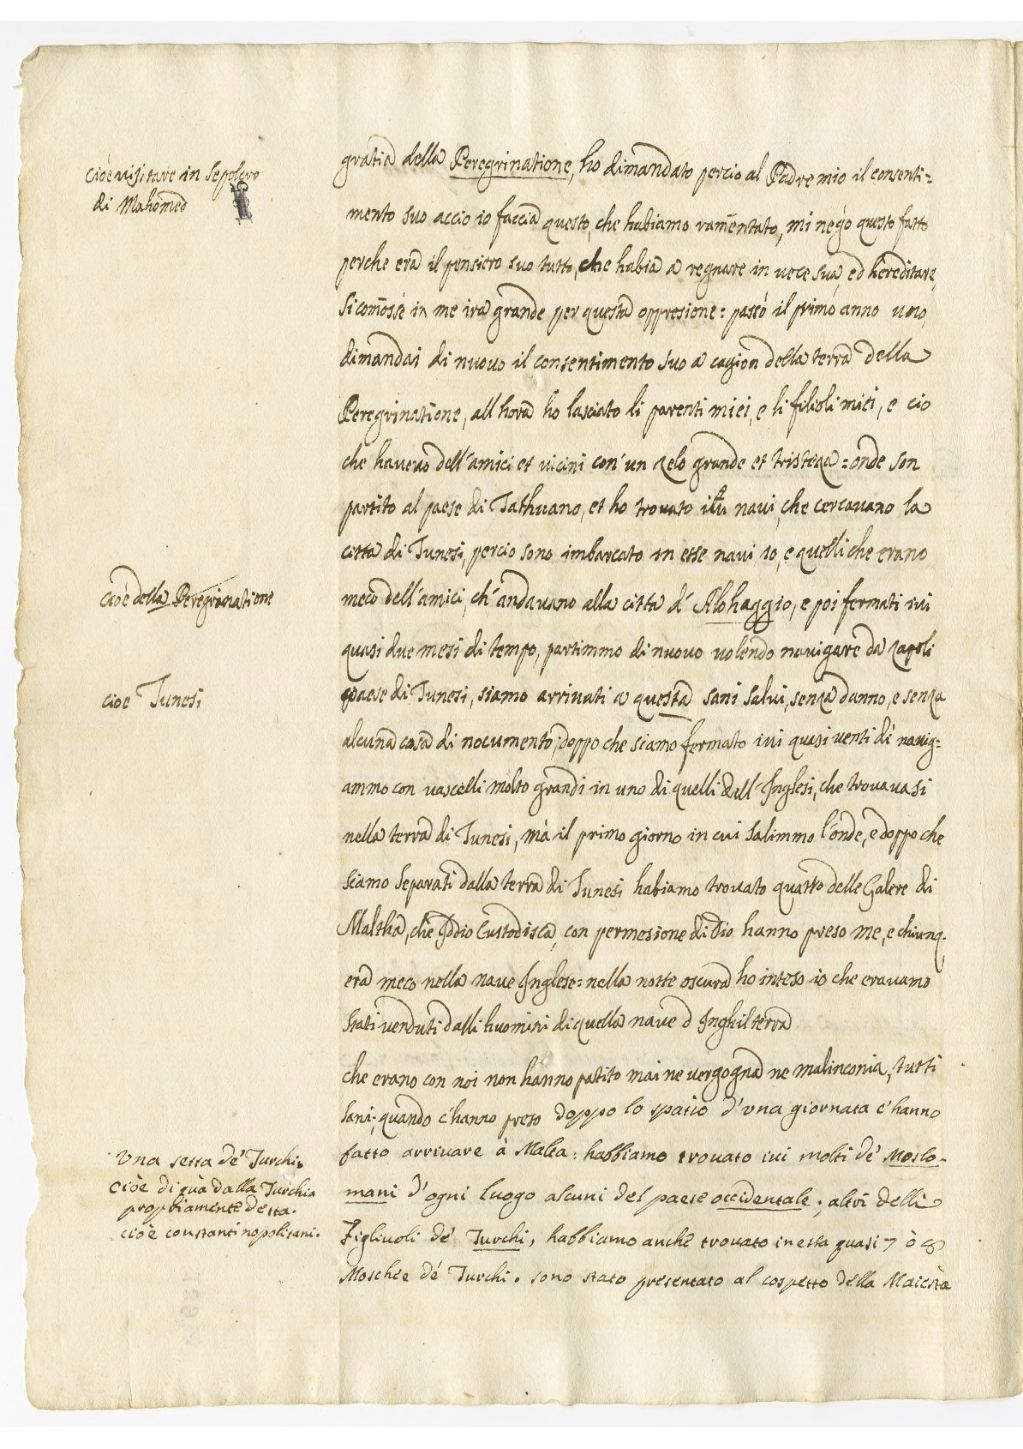 cioè visitare in Sepolcro
di Mahomed
gratia della Peregrinatione, ho dimandato percio al Padre mio il consenti=
mento suo accio io faccia questo, che habiamo ram̃entato, mi negò questo fatto
perche era il pensiero suo tutto, che habia a regnare in vece sua, ed hereditare,
si com̃osse in me ira grande per questa oppresione: passò il primo anno uno
dimandai di nuovo il consentimento suo a cagion della terra della
Peregrinatione, all'hora ho lasciato li parenti miei, e li filioli miei, e cio
che havevo dell'amici et vicini con'un zelo grande et tristeza: onde son
partito al paese di Tathuano, et ho trovato navi, che cercavano la
citta di Tunesi, percio sono imbarcato in esse navi io, e quelli che erano
cioè della Peregrinatione
meco dell'amici, ch'andavano alla citta d'Alohaggio, e poi fermati ivi
quasi due mesi di tempo, partimmo di nuovo volendo navigare da
cioe Tunesi
paese di Tunesi, siamo arrivati a questa sani salvi, senza danno, e senza
alcuna cosa di nocumento, doppo che siamo fermato ivi quasi venti dì navig=
ammo con vascelli molto grandi in uno di quelli dell'Inglesi, che trovavasi
nella terra di Tunesi, mà il primo giorno in cui salimmo l'onde, e doppo che
siamo separati dalla terra di Tunesi habiamo trovato quatro delle Galere di
Maltha, che Iddio Custodisca, con permesione di Dio hanno preso me, e chiunq.
era meco nella nave Inglese: nella notte oscura ho inteso io che eravamo
stati venduti dalli huomini di quella nave d Inghilterra
che erano con noi non hanno patito mai ne vergogna ne malinconia, tutti
sani; quando c'hanno preso doppo lo spatio d'una giornata c'hanno
fatto arrivare à Malta: habbiamo trovato ivi molti de' Moslo-
Una setta de' Turchi.
cioè di quà dalla Turchia
propriamente detta.
mani d'ogni luogo alcuni del paese occidentale; altri delli
cioè constantinopolitani.
Figlivoli de' Turchi, habbiamo anche trovato in essa quasi 7 ò 8
Moschee de' Turchi. sono stato presentato al cospetto della Maiestà